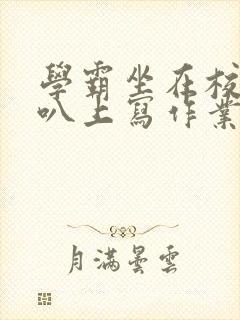 學霸坐在校
叭上寫作業
月滿曇雲